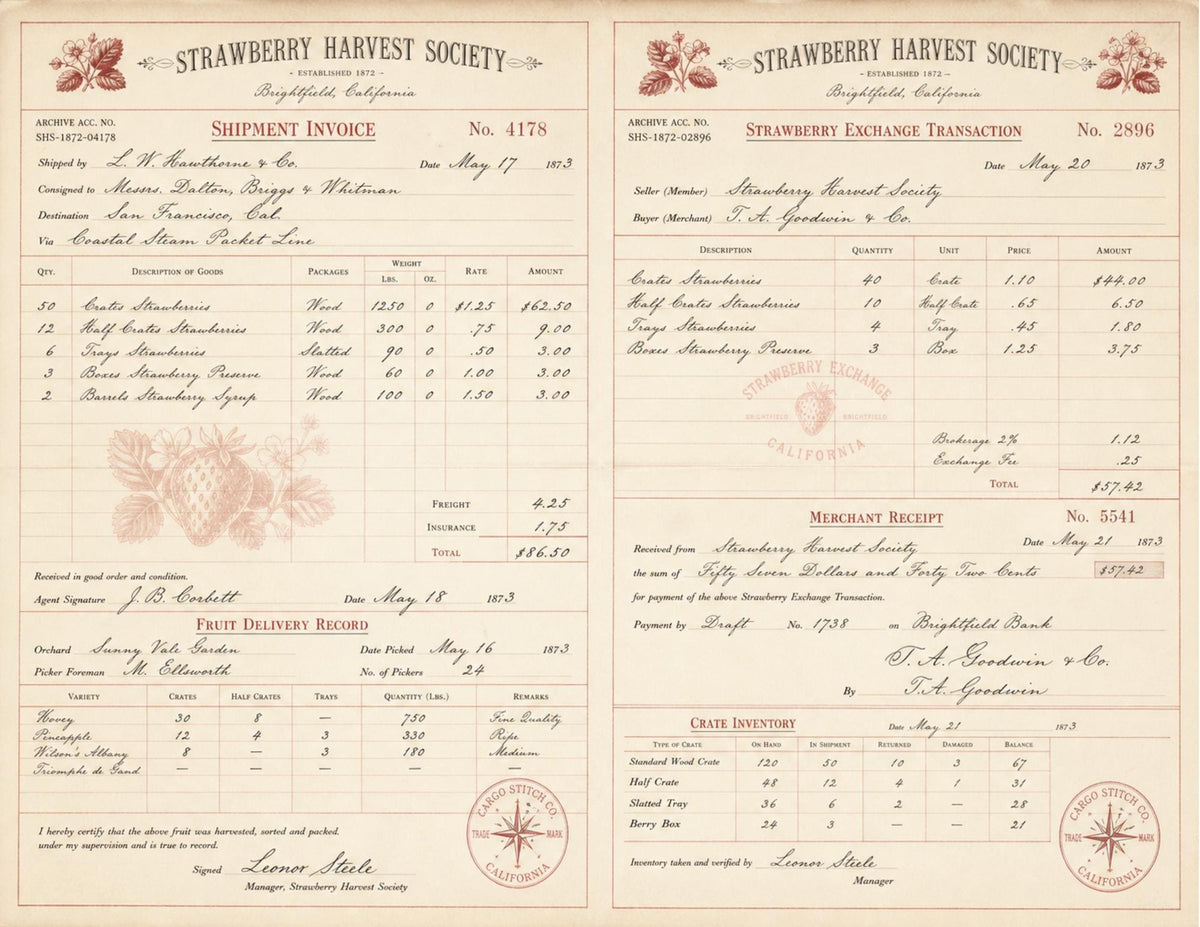 STRAWBERRY HARVEST SOCIETY
- ESTABLISHED 1872 -
Brightfield, California
ARCHIVE ACC. NO.
SHS-1872-04178
SHIPMENT INVOICE
No. 4178
Shipped by L. W. Hawthorne & Co. Date May 17 1873
Consigned to Messrs. Dalton, Briggs & Whitman
Destination San Francisco, Cal.
Via Coastal Steam Packet Line
QTY. DESCRIPTION OF GOODS PACKAGES WEIGHT LBS. OZ. RATE AMOUNT
50 Crates Strawberries Wood 1250 0 $1.25 $62.50
12 Half Crates Strawberries Wood 300 0 .75 9.00
6 Trays Strawberries Slatted 90 0 .50 3.00
3 Boxes Strawberry Preserve Wood 60 0 1.00 3.00
2 Barrels Strawberry Syrup Wood 100 0 1.50 3.00
FREIGHT 4.25
INSURANCE 1.75
TOTAL $86.50
Received in good order and condition.
Agent Signature J. B. Corbett Date May 18 1873
FRUIT DELIVERY RECORD
Orchard Sunny Vale Garden Date Picked May 16 1873
Picker Foreman M. Ellsworth No. of Pickers 24
VARIETY CRATES HALF CRATES TRAYS QUANTITY (LBS.) REMARKS
Hovey 30 8 — 750 Fine Quality
Pineapple 12 4 3 330 Ripe
Wilson's Albany 8 — 3 180 Medium
Triomphe de Gand — — — — —
I hereby certify that the above fruit was harvested, sorted and packed.
under my supervision and is true to record.
Signed Leonor Steele
Manager, Strawberry Harvest Society
CARGO STITCH CO.
TRADE MARK
CALIFORNIA
STRAWBERRY HARVEST SOCIETY
- ESTABLISHED 1872 -
Brightfield, California
ARCHIVE ACC. NO.
SHS-1872-02896
STRAWBERRY EXCHANGE TRANSACTION
No. 2896
Date May 20 1873
Seller (Member) Strawberry Harvest Society
Buyer (Merchant) T. A. Goodwin & Co.
DESCRIPTION QUANTITY UNIT PRICE AMOUNT
Crates Strawberries 40 Crate 1.10 $44.00
Half Crates Strawberries 10 Half Crate .65 6.50
Trays Strawberries 4 Tray .45 1.80
Boxes Strawberry Preserve 3 Box 1.25 3.75
STRAWBERRY EXCHANGE
BRIGHTFIELD BRIGHTFIELD
CALIFORNIA
Brokerage 2% 1.12
Exchange Fee .25
TOTAL $57.42
MERCHANT RECEIPT
No. 5541
Date May 21 1873
Received from Strawberry Harvest Society
the sum of Fifty Seven Dollars and Forty Two Cents $57.42
for payment of the above Strawberry Exchange Transaction.
Payment by Draft No. 1738 on Brightfield Bank
T. A. Goodwin & Co.
By T.A. Goodwin
CRATE INVENTORY Date May 21 1873
TYPE OF CRATE ON HAND IN SHIPMENT RETURNED DAMAGED BALANCE
Standard Wood Crate 120 50 10 3 67
Half Crate 48 12 4 1 31
Slatted Tray 36 6 2 — 28
Berry Box 24 3 — — 21
Inventory taken and verified by Leonor Steele
Manager
CARGO STITCH CO.
TRADE MARK
CALIFORNIA